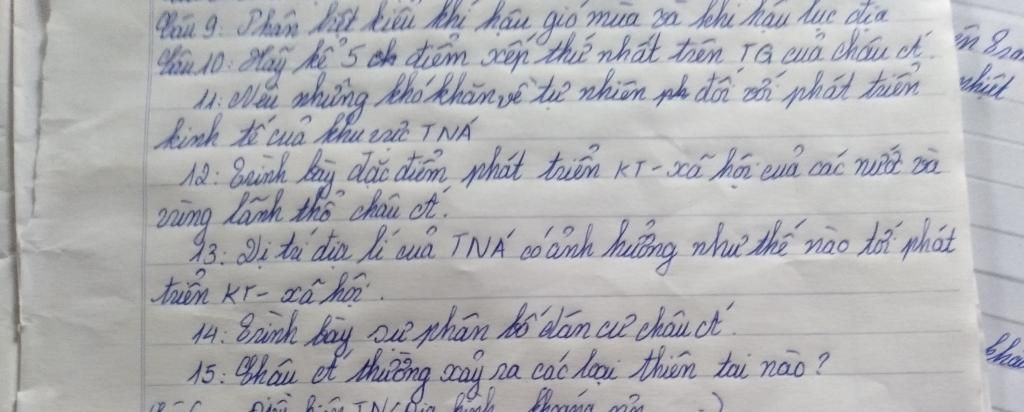 Câu 9: Phân biệt kiểu khí hậu gió mùa và khí hậu lục địa
Câu 10: Hãy kể 5 ch điểm xếp thứ nhất trên TG của châu Á.
11: Nêu những khó khăn về tự nhiên ph đối với phát triển
kinh tế của khu vực TNÁ
12: Trình bày đặc điểm phát triển KT - xã hội của các nước và
vùng lãnh thổ châu Á.
13: Vị trí địa lí của TNÁ có ảnh hưởng như thế nào tới phát
triển KT - xã hội.
14: Trình bày sự phân bố dân cư châu Á.
15: Châu Á thường xảy ra các loại thiên tai nào?